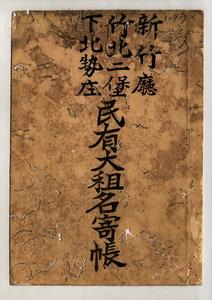 新竹廳
竹北二堡
下北勢庄
民有大租名寄帳